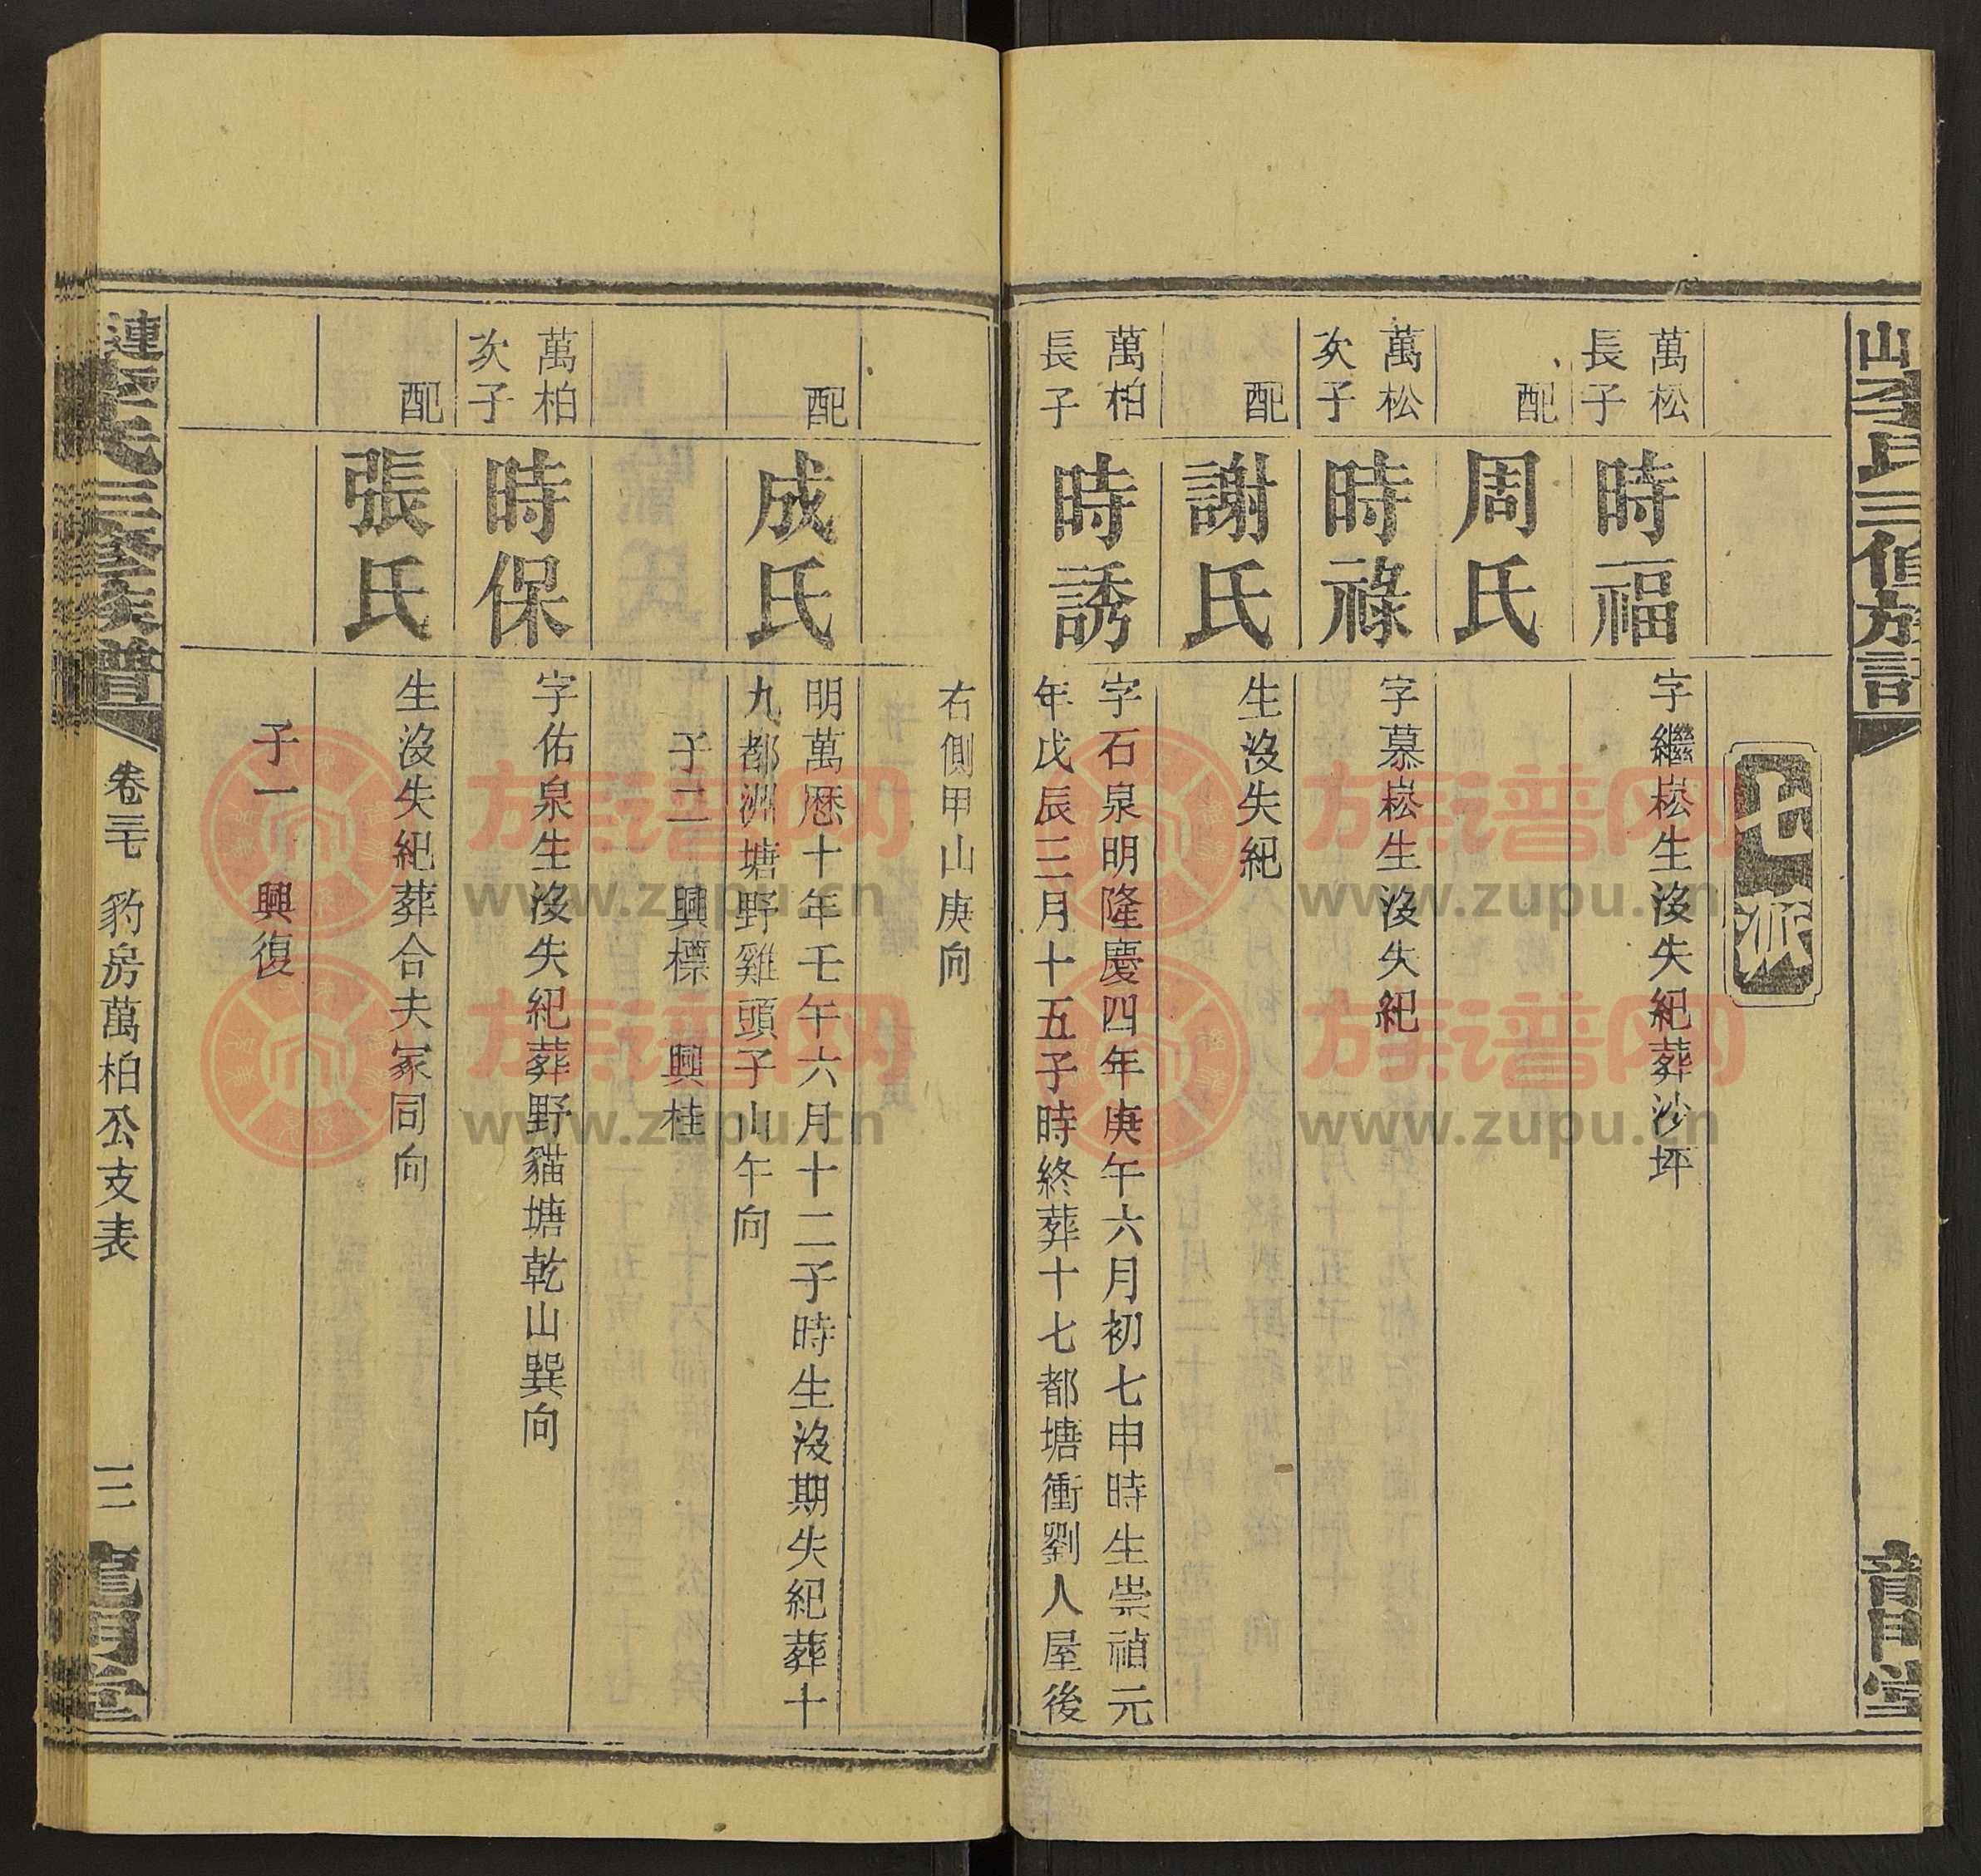 山李氏三修族譜
龍門堂
七派
萬松
長子
時福
字繼崧生沒失紀葬沙坪
配
周氏
萬松
次子
時祿
字慕崧生沒失紀
配
謝氏
生沒失紀
萬柏
長子
時誘
字石泉明隆慶四年庚午六月初七申時生崇禎元
年戊辰三月十五子時終葬十七都塘衝劉人屋後
右側甲山庚向
配
成氏
明萬厯十年壬午六月十二子時生沒期失紀葬十
九都洲塘野雞頭子山午向
子二 興標 興桂
萬柏
次子
時保
字佑泉生沒失紀葬野貓塘乾山巽向
配
張氏
生沒失紀葬合夫冢同向
子一 興復
連李氏三修族譜
卷三七 豹房萬柏公支表
三
龍門堂
族谱网
www.zupu.cn
族谱网
www.zupu.cn
族谱网
www.zupu.cn
族谱网
www.zupu.cn